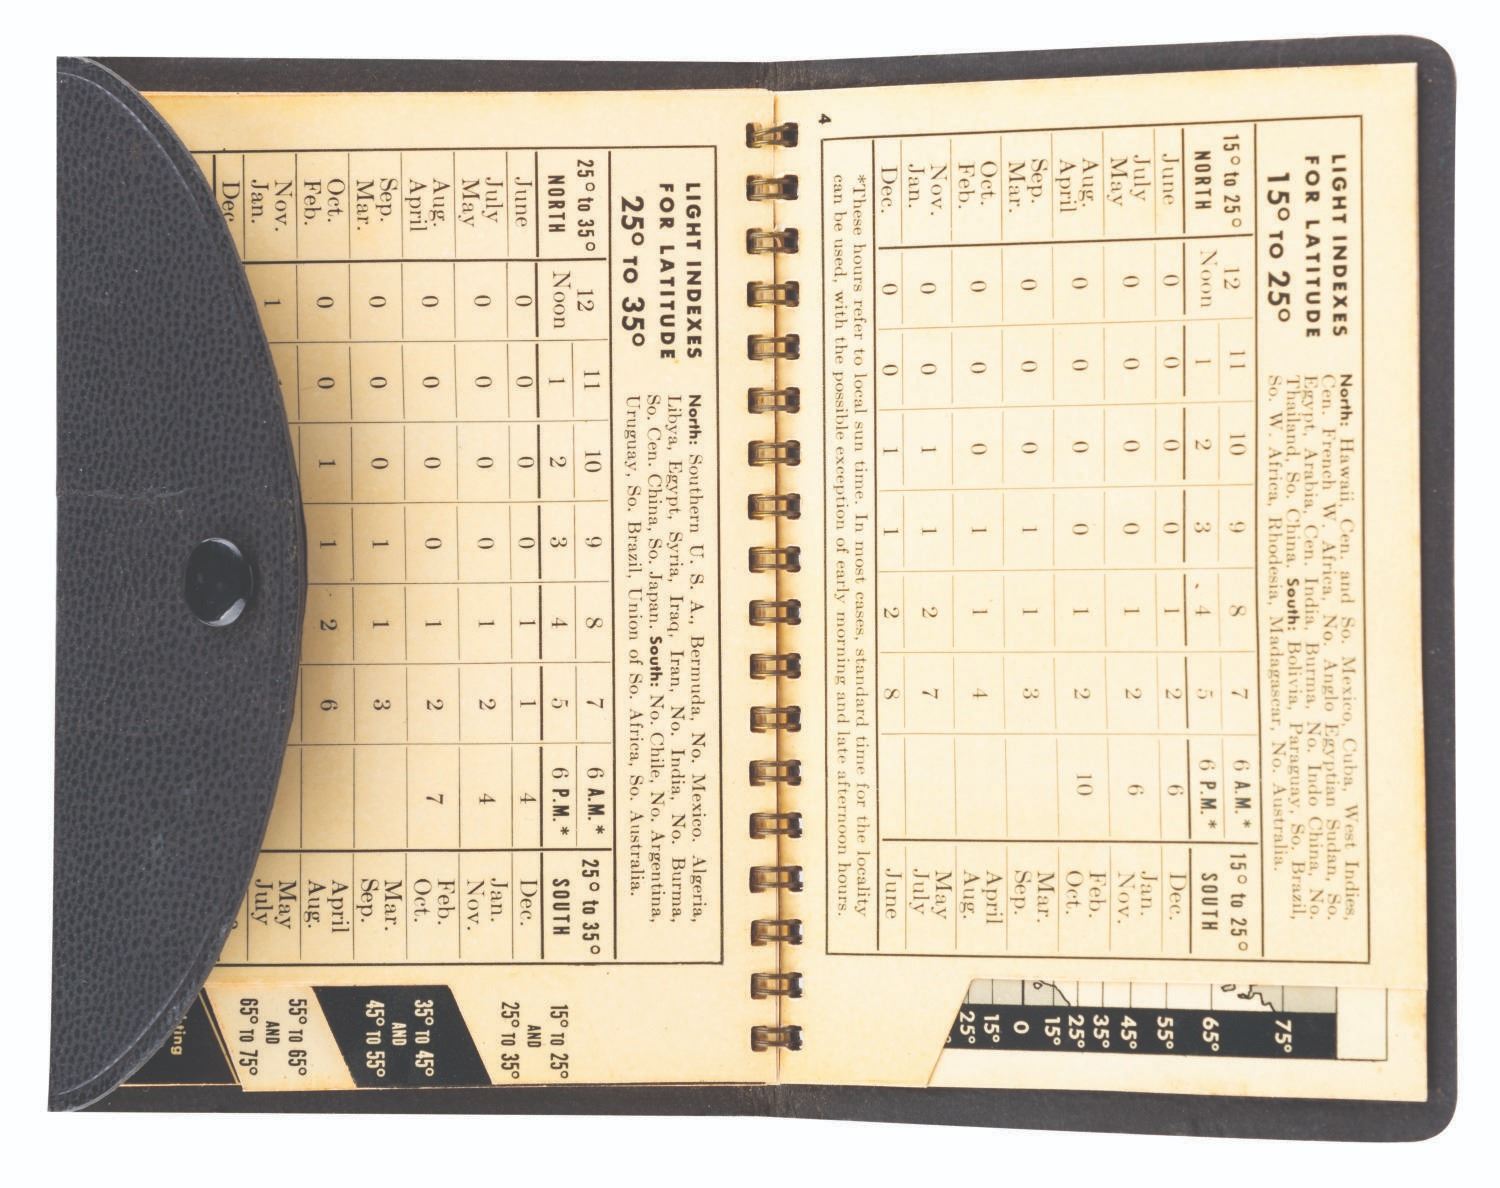 4
LIGHT INDEXES
FOR LATITUDE
15° TO 25°
North: Hawaii, Cen. and So. Mexico, Cuba, West Indies,
Cen. French W. Africa, No. Anglo Egyptian Sudan, So.
Egypt, Arabia, Cen. India, Burma, No. Indo China, No.
Thailand, So. China. South: Bolivia, Paraguay, So. Brazil,
So. W. Africa, Rhodesia, Madagascar, No. Australia.
15° to 25° 12 11 10 9 8 7 6 A.M.* 15° to 25°
NORTH Noon 1 2 3 4 5 6 P.M.* SOUTH
June 0 0 0 0 1 2 6 Dec.
July 0 0 0 0 1 2 6 Jan.
May Nov.
Aug. 0 0 0 0 1 2 10 Feb.
April Oct.
Sep. 0 0 0 1 1 3 Mar.
Mar. Sep.
Oct. 0 0 0 1 1 4 April
Feb. Aug.
Nov. 0 0 1 1 2 7 May
Jan. July
Dec. 0 0 1 1 2 8 June
*These hours refer to local sun time. In most cases, standard time for the locality
can be used, with the possible exception of early morning and late afternoon hours.
75°
65°
55°
45°
35°
25°
15°
0
15°
25°
LIGHT INDEXES
FOR LATITUDE
25° TO 35°
North: Southern U. S. A., Bermuda, No. Mexico, Algeria,
Libya, Egypt, Syria, Iraq, Iran, No. India, No. Burma,
So. Cen. China, So. Japan. South: No. Chile, No. Argentina,
Uruguay, So. Brazil, Union of So. Africa, So. Australia.
25° to 35° 12 11 10 9 8 7 6 A.M.* 25° to 35°
NORTH Noon 1 2 3 4 5 6 P.M.* SOUTH
June 0 0 0 0 1 1 4 Dec.
July 0 0 0 0 1 2 4 Jan.
May Nov.
Aug. 0 0 0 0 1 2 7 Feb.
April Oct.
Sep. 0 0 0 1 1 3 Mar.
Mar. Sep.
Oct. 0 0 1 1 2 6 April
Feb. Aug.
Nov. 1 May
Jan. July
Dec
15° TO 25°
AND
25° TO 35°
35° TO 45°
AND
45° TO 55°
55° TO 65°
AND
65° TO 75°